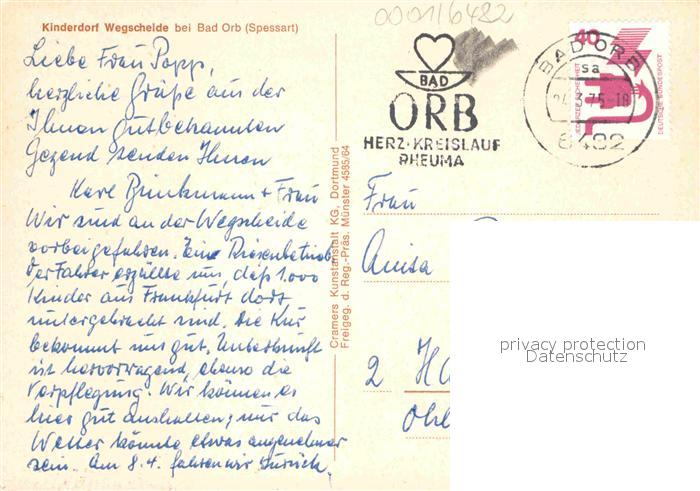 Kinderdorf Wegscheide bei Bad Orb (Spessart)
Liebe Frau Popp,
herzliche Grüße aus der
Ihnen gutbekannten
Gegend senden Ihnen
Karl Brinkmann + Frau
Wir sind an der Wegscheide
vorbeigefahren. Ein Riesenbetrieb
der Fahrer erzählte uns, daß 1.000
Kinder aus Frankfurt dort
untergebracht sind. Die Kur
bekommt uns gut, Unterkunft
ist hervorragend, ebenso die
Verpflegung. Wir können es
hier gut aushalten; nur das
Wetter könnte etwas angenehmer
sein. Am 8.4. fahren wir zurück.
Cramers Kunstanstalt KG, Dortmund
Freigeg. d. Reg.-Präs. Münster 4585/64
00011/6482
BAD
ORB
HERZ·KREISLAUF
RHEUMA
BAD ORB
sa
75-18
6482
40
JEDERZEIT SICHERHEIT
DEUTSCHE BUNDESPOST
Frau
Anisa
2 Ha
Ohl
privacy protection
Datenschutz